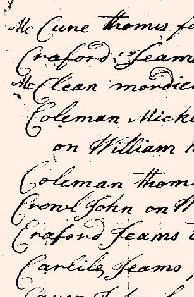 Mc Cune thomis fo
Craford, Seams
Mc Clean mordica
Coleman Micke
on William
Coleman thom
Crowl John on W
Craford Seams
Carlile, Seams